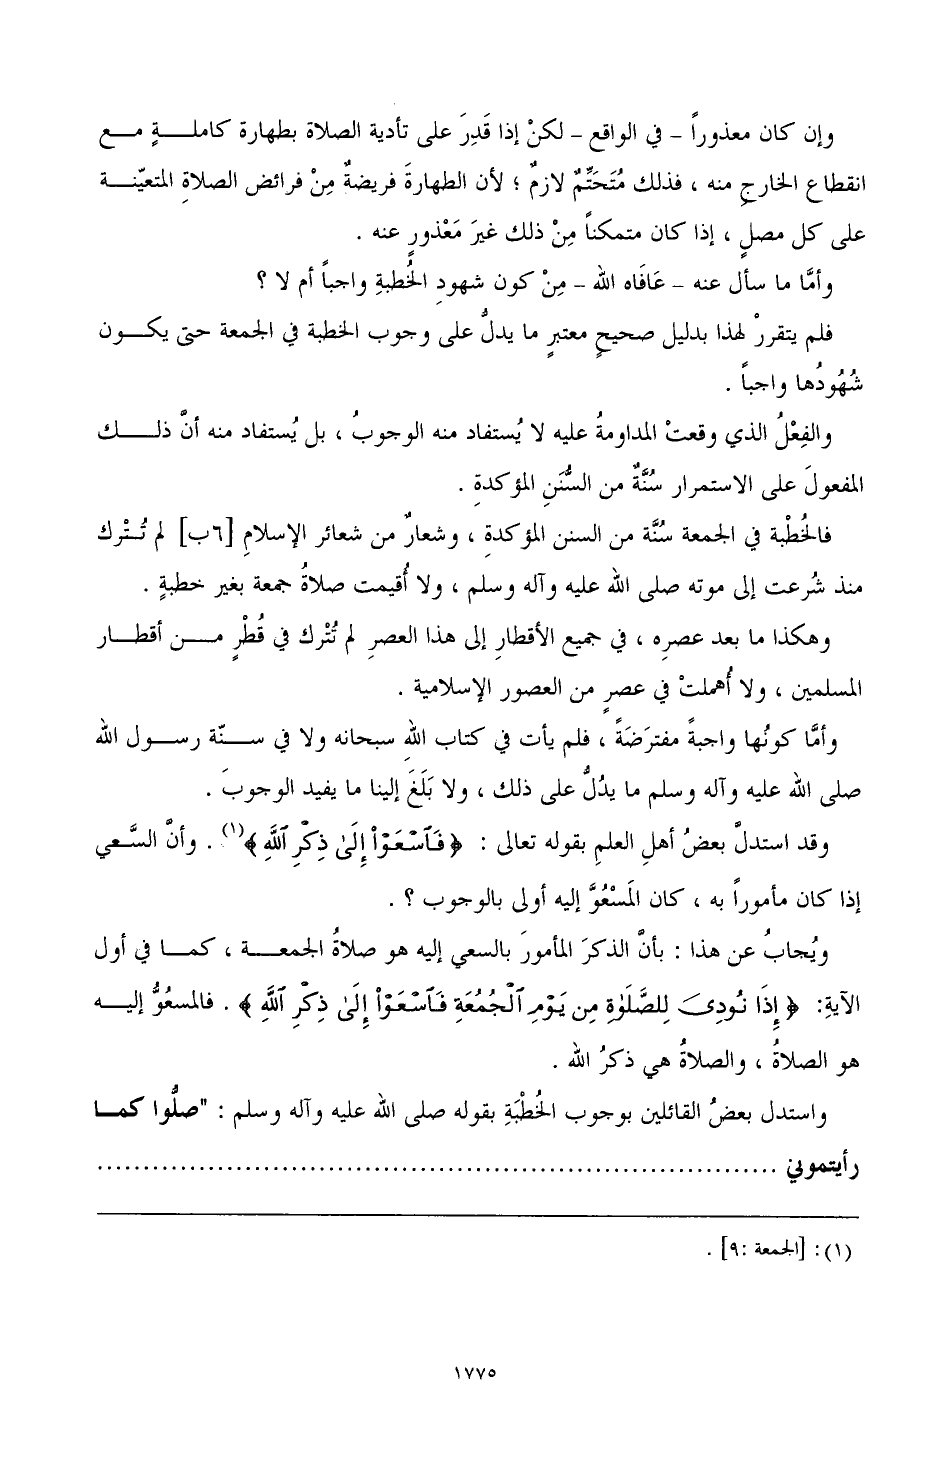 وإن كان معذوراً – في الواقع – لكنْ إذا قَدِرَ على تأدية الصلاة بطهارة كاملـــةٍ مـــع
انقطاع الخارجِ منه ، فذلك مُتَحَتِّمٌ لازمٌ ؛ لأن الطهارةَ فريضةٌ مِنْ فرائض الصلاةِ المتعيّنـــة
على كل مصلٍ ، إذا كان متمكناً مِنْ ذلك غيرَ مَعْذورٍ عنه .
وأمَّا ما سأل عنه – عَافَاه الله – مِنْ كون شهودِ الخُطبةِ واجباً أم لا ؟
فلم يتقررْ لهذا بدليل صحيحٍ معتبرٍ ما يدلُّ على وجوب الخطبة في الجمعة حتى يكـــون
شُهُودُها واجباً .
والفِعْلُ الذي وقعتْ المداومةُ عليه لا يُستفاد منه الوجوبُ ، بل يُستفاد منه أنَّ ذلـــك
المفعولَ على الاستمرار سُنَّةٌ من السُّنَنِ المؤكدةِ .
فالخُطْبة في الجمعة سُنَّة من السنن المؤكدةِ ، وشعارٌ من شعائر الإسلامِ [٦ب] لم تُـتْرك
منذ شُرعت إلى موته صلى الله عليه وآله وسلم ، ولا أُقيمت صلاةُ جمعة بغير خطبةٍ .
وهكذا ما بعد عصرِه ، في جميع الأقطارِ إلى هذا العصرِ لم تُتْرك في قُطْرٍ مـــن أقطـــار
المسلمين ، ولا أُهملتْ في عصرٍ من العصور الإسلامية .
وأمَّا كونُها واجبةً مفترَضَةً ، فلم يأت في كتاب اللهِ سبحانه ولا في ســـنّة رســـول الله
صلى الله عليه وآله وسلم ما يدُلُّ على ذلك ، ولا بَلَغَ إلينا ما يفيد الوجوبَ .
وقد استدلَّ بعضُ أهلِ العلمِ بقوله تعالى : ﴿ فَٱسْعَوْا۟ إِلَىٰ ذِكْرِ ٱللَّهِ ﴾(١) . وأنَّ السَّعي
إذا كان مأموراً به ، كان المَسْعُوَّ إليه أولى بالوجوب ؟ .
ويُجابُ عن هذا : بأنَّ الذكرَ المأمورَ بالسعي إليه هو صلاةُ الجمعـــة ، كمـــا في أول
الآيةِ: ﴿ إِذَا نُودِىَ لِلصَّلَوٰةِ مِن يَوْمِ ٱلْجُمُعَةِ فَٱسْعَوْا۟ إِلَىٰ ذِكْرِ ٱللَّهِ ﴾ . فالمسعُوُّ إليـــه
هو الصلاةُ ، والصلاةُ هي ذكرُ الله .
واستدل بعضُ القائلين بوجوب الخُطْبَةِ بقوله صلى الله عليه وآله وسلم : "صلُّوا كمـــا
رأيتموني ......................................................................
(١) : [الجمعة :٩] .
١٧٧٥